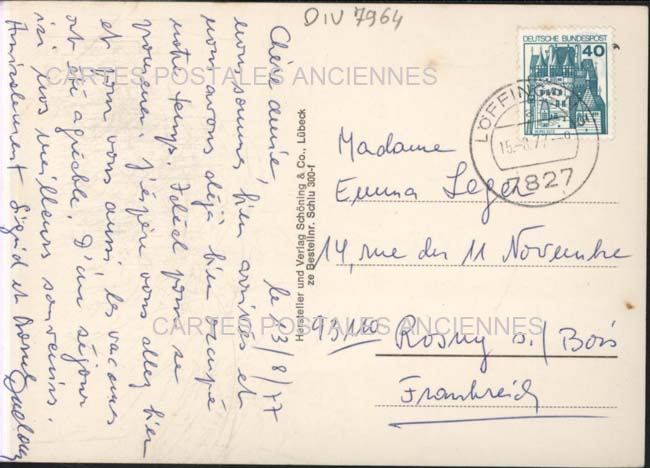 DIV 7964
le 13/8/77
Chère amie,
nous sommes bien arrivés et
nous avons déjà bien occupé
notre temps. Idéal pour se
promener. J'espère vous allez bien
et pour vous aussi les vacances
ont été agréable. D'un séjour
ici nos meilleurs souvenirs.
Amicalement Sigrid et
Hersteller und Verlag Schöning & Co., Lübeck
ze Bestellnr. Schlu 300-f
DEUTSCHE BUNDESPOST
40
LÖFFINGEN
15.-8.77
7827
Madame
Emma Leger
14, rue du 11 Novembre
93110
Rosny s./Bois
Frankreich
CARTES POSTALES ANCIENNES
CARTES POSTALES ANCIENNES